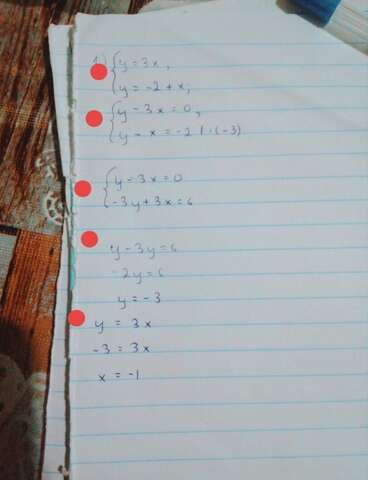 1) { y = 3x,
y = -2 + x;
{ y - 3x = 0,
y - x = -2 / · (-3)
{ y - 3x = 0
-3y + 3x = 6
y - 3y = 6
-2y = 6
y = -3
y = 3x
-3 = 3x
x = -1